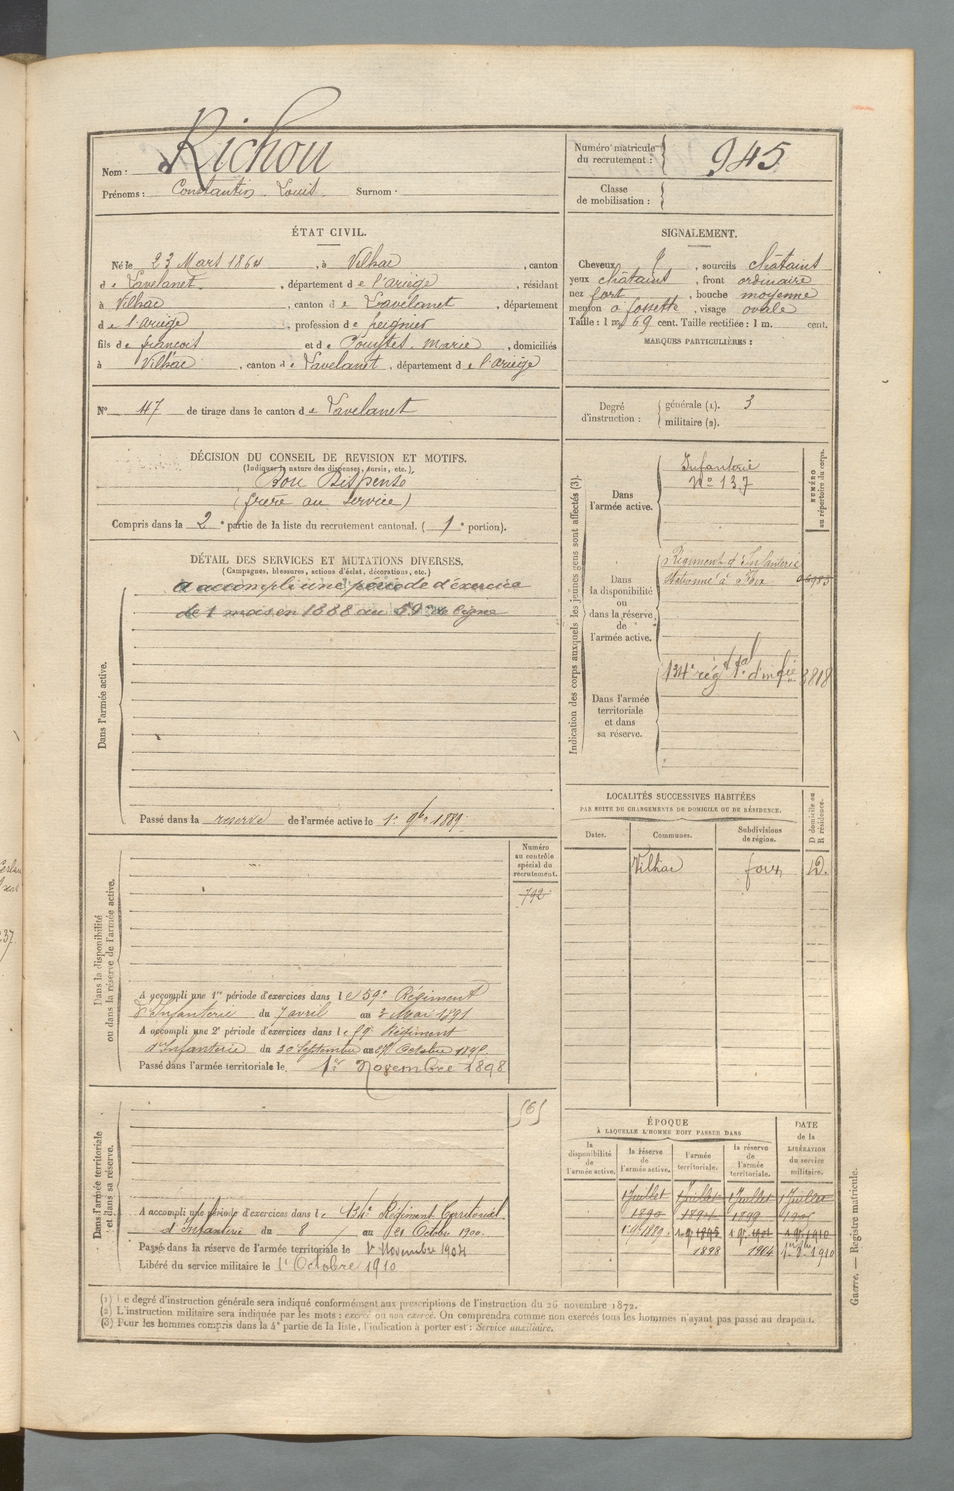 Nom : Richou
Prénoms : Constantin Louis Surnom ·
Numéro matricule du recrutement : 945
Classe de mobilisation :
ÉTAT CIVIL.
Né le 23 Mars 1864, à Vilhac, canton
de Lavelanet, département de l'ariège, résidant
à Vilhac, canton de Lavelanet, département
de l'ariège, profession de peignier
fils de francois et de Pouytes Marie, domiciliés
à Vilhac, canton de Lavelanet, département de l'ariège
N° 47 de tirage dans le canton de Lavelanet
SIGNALEMENT.
Cheveux, sourcils châtains
yeux châtains, front ordinaire
nez fort, bouche moyenne
menton à fossette, visage ovale
Taille : 1 m. 69 cent. Taille rectifiée : 1 m. cent.
MARQUES PARTICULIÈRES :
Degré d'instruction : générale (1). 3
militaire (2).
DÉCISION DU CONSEIL DE REVISION ET MOTIFS.
(Indiquer la nature des dispenses, sursis, etc.)
Bon Dispensé
(frère au service)
Compris dans la 2e partie de la liste du recrutement cantonal. (1e portion).
DÉTAIL DES SERVICES ET MUTATIONS DIVERSES.
(Campagnes, blessures, actions d'éclat, décorations, etc.)
A accompli une période d'exercice
de 1 mois en 1888 au 59e de ligne
Dans l'armée active.
Passé dans la reserve de l'armée active le 1er 9bre 1889.
Indication des corps auxquels les jeunes gens sont affectés (3).
NUMÉRO au répertoire du corps.
Dans l'armée active.
Infanterie
N° 137
Dans la disponibilité ou dans la réserve de l'armée active.
Régiment d'Infanterie
stationné à Foix
Dans l'armée territoriale et dans sa réserve.
134e régt tal d'inf ie 3818
LOCALITÉS SUCCESSIVES HABITÉES
PAR SUITE DE CHANGEMENTS DE DOMICILE OU DE RÉSIDENCE.
Dates. Communes. Subdivisions de région. D domicile ou R résidence.
Vilhac foix D.
Numéro au contrôle spécial du recrutement.
792
Dans la disponibilité ou dans la réserve de l'armée active.
A accompli une 1re période d'exercices dans le 59e Régiment
d'Infanterie du 7 avril au 3 Mai 1891
A accompli une 2e période d'exercices dans le 59e Régiment
d'Infanterie du 30 Septembre au 27 Octobre 1895.
Passé dans l'armée territoriale le 1er Novembre 1898
Dans l'armée territoriale et dans sa réserve.
A accompli une période d'exercices dans le 134e Régiment Territorial
d'Infanterie du 8 au 21 Octobre 1900.
Passé dans la réserve de l'armée territoriale le 1er Novembre 1904
Libéré du service militaire le 1er Octobre 1910
ÉPOQUE
À LAQUELLE L'HOMME DOIT PASSER DANS
la disponibilité de l'armée active. la réserve de l'armée active. l'armée territoriale. la réserve de l'armée territoriale.
DATE de la LIBÉRATION du service militaire.
1 Juillet 1 Juillet 1 Juillet 1 Juillet
1890 1894 1899 1905
1898 1904 1910
(1) Le degré d'instruction générale sera indiqué conformément aux prescriptions de l'instruction du 26 novembre 1872.
(2) L'instruction militaire sera indiquée par les mots : exercé ou non exercé. On comprendra comme non exercés tous les hommes n'ayant pas passé au drapeau.
(3) Pour les hommes compris dans la 4e partie de la liste, l'indication à porter est : Service auxiliaire.
Guerre. — Registre matricule.